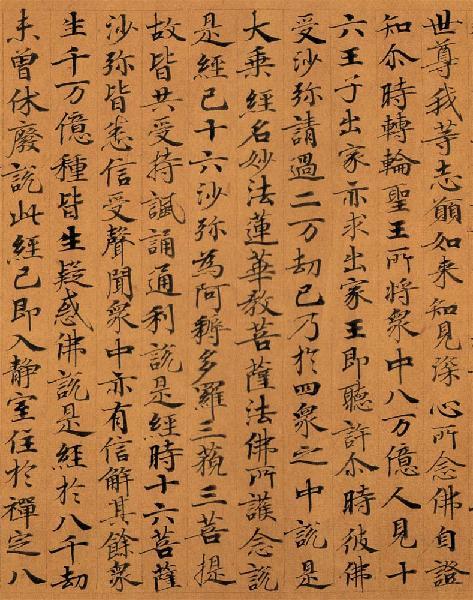 世尊我等志願如来知見深心所念佛自證
知尒時轉輪聖王所將衆中八万億人見十
六王子出家亦求出家王即聽許尒時彼佛
受沙弥請過二万劫已乃於四衆之中說是
大乗經名妙法蓮華教菩薩法佛所護念說
是經已十六沙弥為阿耨多羅三藐三菩提
故皆共受持諷誦通利說是經時十六菩薩
沙弥皆悉信受聲聞衆中亦有信解其餘衆
生千万億種皆生疑惑佛說是經於八千劫
未曾休廢說此經已即入靜室住於禪定八